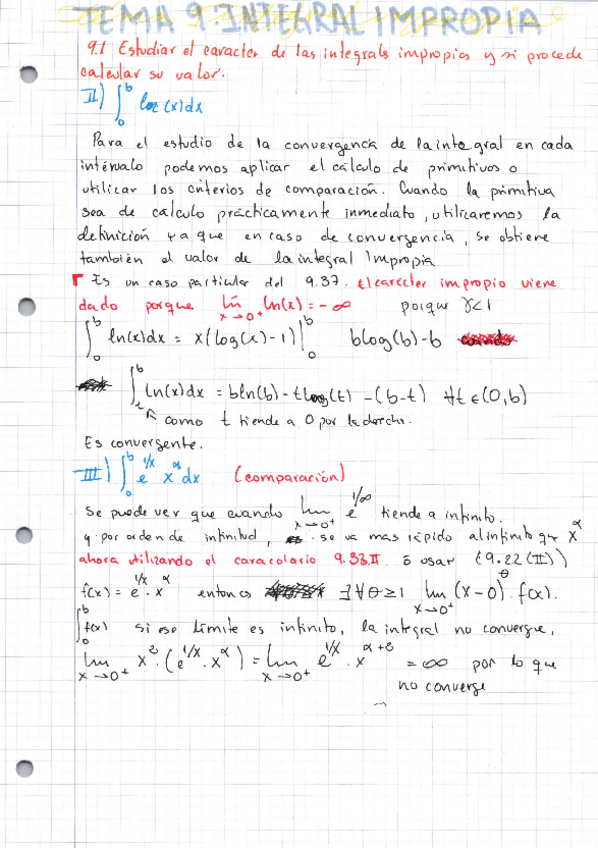 TEMA 9. INTEGRAL IMPROPIA
9.1 Estudiar el caracter de las integrals impropias y si procede
calcular su valor.
II) ∫₀ᵇ log(x)dx
Para el estudio de la convergencia de la integral en cada
intérvalo podemos aplicar el cálculo de primitivos o
utilizar los criterios de comparación. Cuando la primitiva
sea de cálculo prácticamente inmediato, utilizaremos la
definición ya que en caso de convergencia, se obtiene
también el valor de la integral Impropia
Es un caso particular del 9.37. El caracter impropio viene
dado porque lim x→0⁺ ln(x) = -∞ porque γ<1
∫₀ᵇ ln(x)dx = x(log(x)-1)|₀ᵇ blog(b)-b
∫ₜᵇ ln(x)dx = bln(b)-tlog(t) -(b-t) ∀t ∈(0,b)
como t tiende a 0 por la derecha.
Es convergente.
III) ∫₀ᵇ e^(1/x) x^α dx (comparación)
Se puede ver que cuando lim x→0⁺ e^(1/∞) tiende a infinito.
y por orden de infinitud, se va mas rápido al infinito que x^α
ahora utilizando el caracolario 9.33.II ó usar (9.22(II))
f(x) = e^(1/x) · x^α entonces ∃∀θ≥1 lim x→0⁺ (x-0)^θ · f(x).
∫₀ᵇ f(x) si ese límite es infinito, la integral no converge,
lim x→0⁺ x² · (e^(1/x) · x^α) = lim x→0⁺ e^(1/x) · x^(α+θ) = ∞ por lo que
no converge